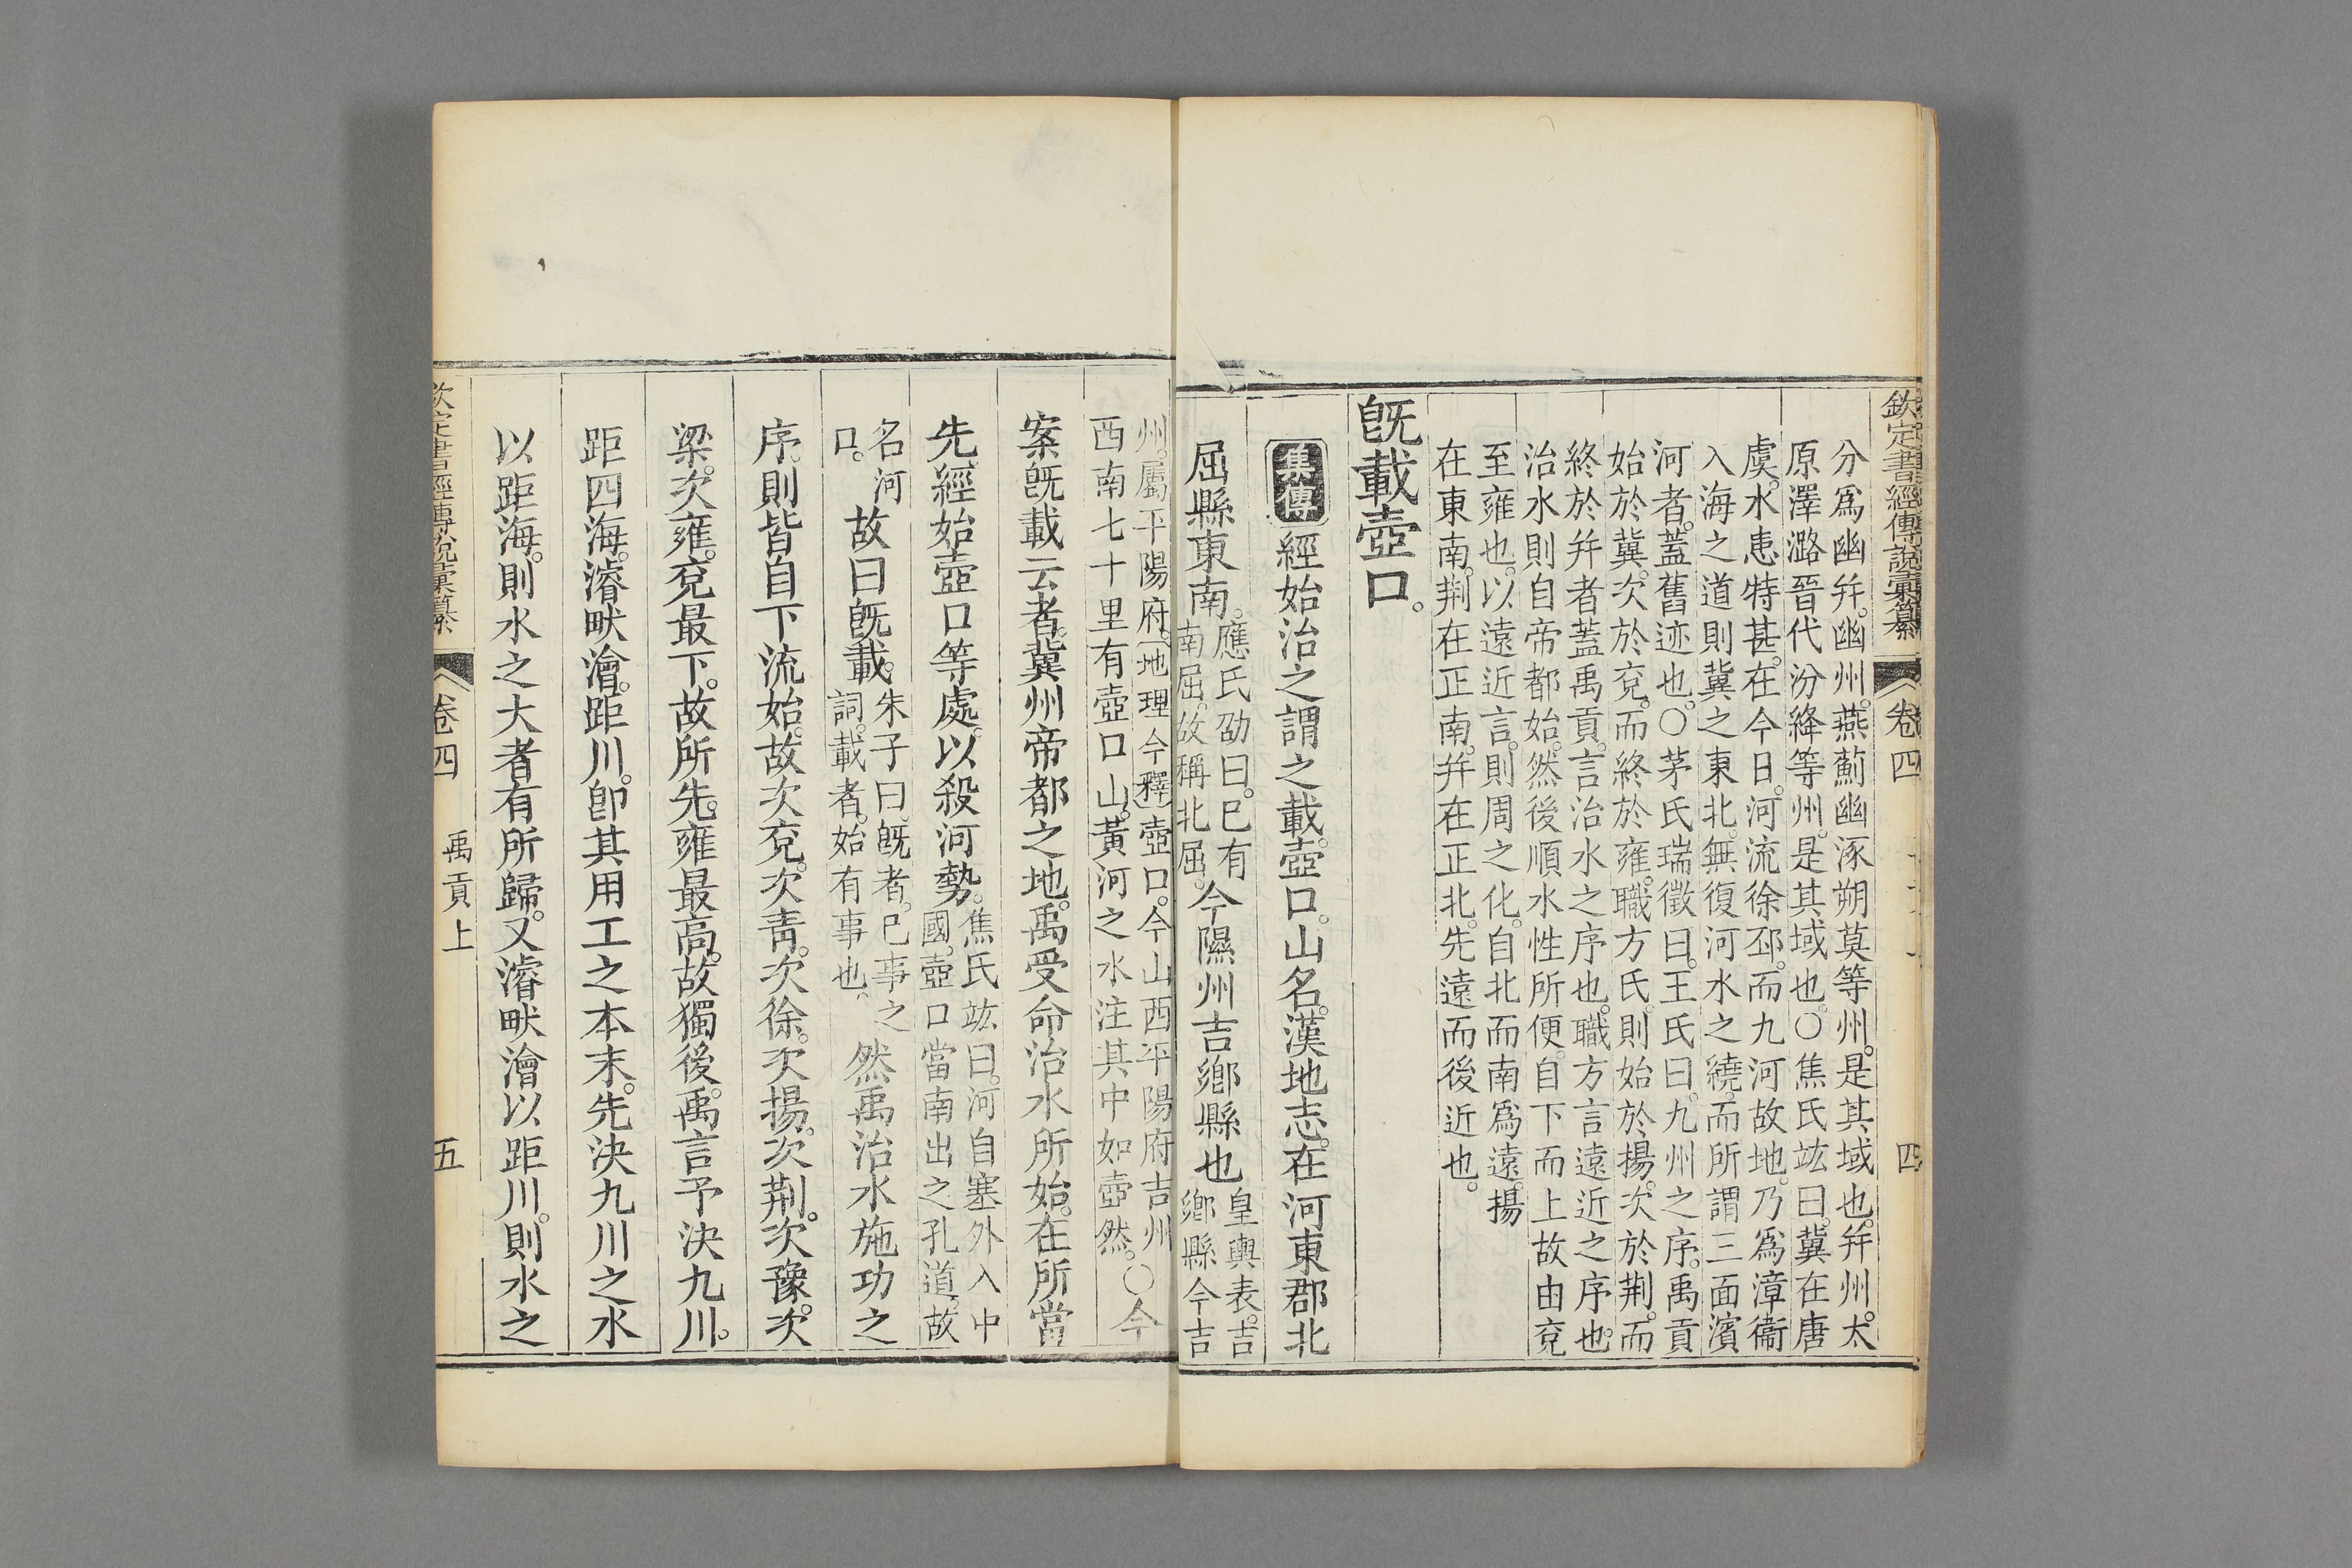 欽定書經傳說彙纂 卷四 四
分爲幽幷。幽州。燕薊幽涿朔莫等州。是其域也。幷州。太
原澤潞晉代汾絳等州。是其域也。○焦氏竑曰。冀在唐
虞。水患特甚。在今日。河流徐邳。而九河故地。乃爲漳衞
入海之道則冀之東北。無復河水之繞。而所謂三面濱
河者。蓋舊迹也。○茅氏瑞徵曰。王氏曰。九州之序。禹貢
始於冀。次於兗。而終於雍。職方氏。則始於揚。次於荆。而
終於幷者蓋禹貢。言治水之序也。職方言遠近之序也。
治水則自帝都始。然後順水性所便。自下而上故由兗
至雍也。以遠近言。則周之化。自北而南爲遠。揚
在東南。荆在正南。幷在正北。先遠而後近也。
旣載壺口。
集傳 經始治之謂之載。壺口。山名。漢地志。在河東郡北
屈縣東南。應氏劭曰。已有
南屈。故稱北屈。今隰州吉鄉縣也皇輿表。吉
鄉縣今吉
州。屬平陽府。地理今釋壺口。今山西平陽府吉州
西南七十里有壺口山。黃河之水注其中如壺然。○今
案旣載云者。冀州帝都之地。禹受命治水所始。在所當
先。經始壺口等處。以殺河勢。焦氏竑曰。河自塞外入中
國。壺口當南出之孔道。故
名河
口。故曰旣載。朱子曰。旣者。已事之
詞。載者。始有事也。然禹治水施功之
序。則皆自下流始。故次兗。次靑。次徐。次揚。次荆。次豫。次
梁。次雍。兗最下。故所先。雍最高。故獨後。禹言予決九川。
距四海。濬畎澮。距川。卽其用工之本末。先決九川之水
以距海。則水之大者有所歸。又濬畎澮以距川。則水之
欽定書經傳說彙纂 卷四 禹貢上 五